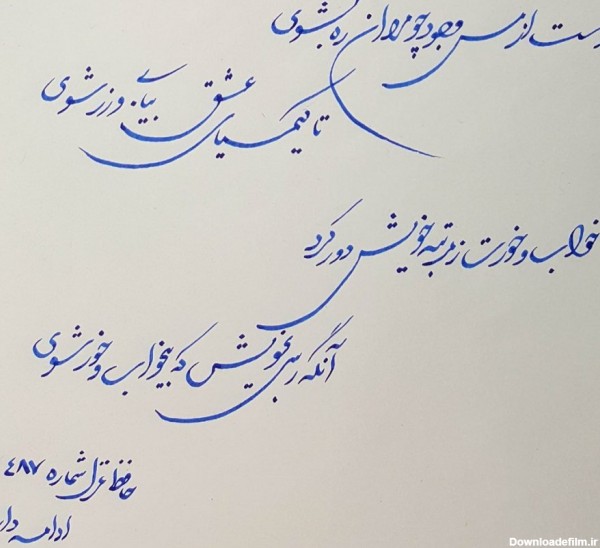 ست از مس وجود چو مردان ره بشوی
تا کیمیای عشق بیابی و زر شوی
خواب و خورت ز مرتبه خویش دور کرد
آنگه رسی بخویش که بیخواب و خور شوی
حافظ غزل شماره ۴۸۷
ادامه دار
Downloadefilm.ir